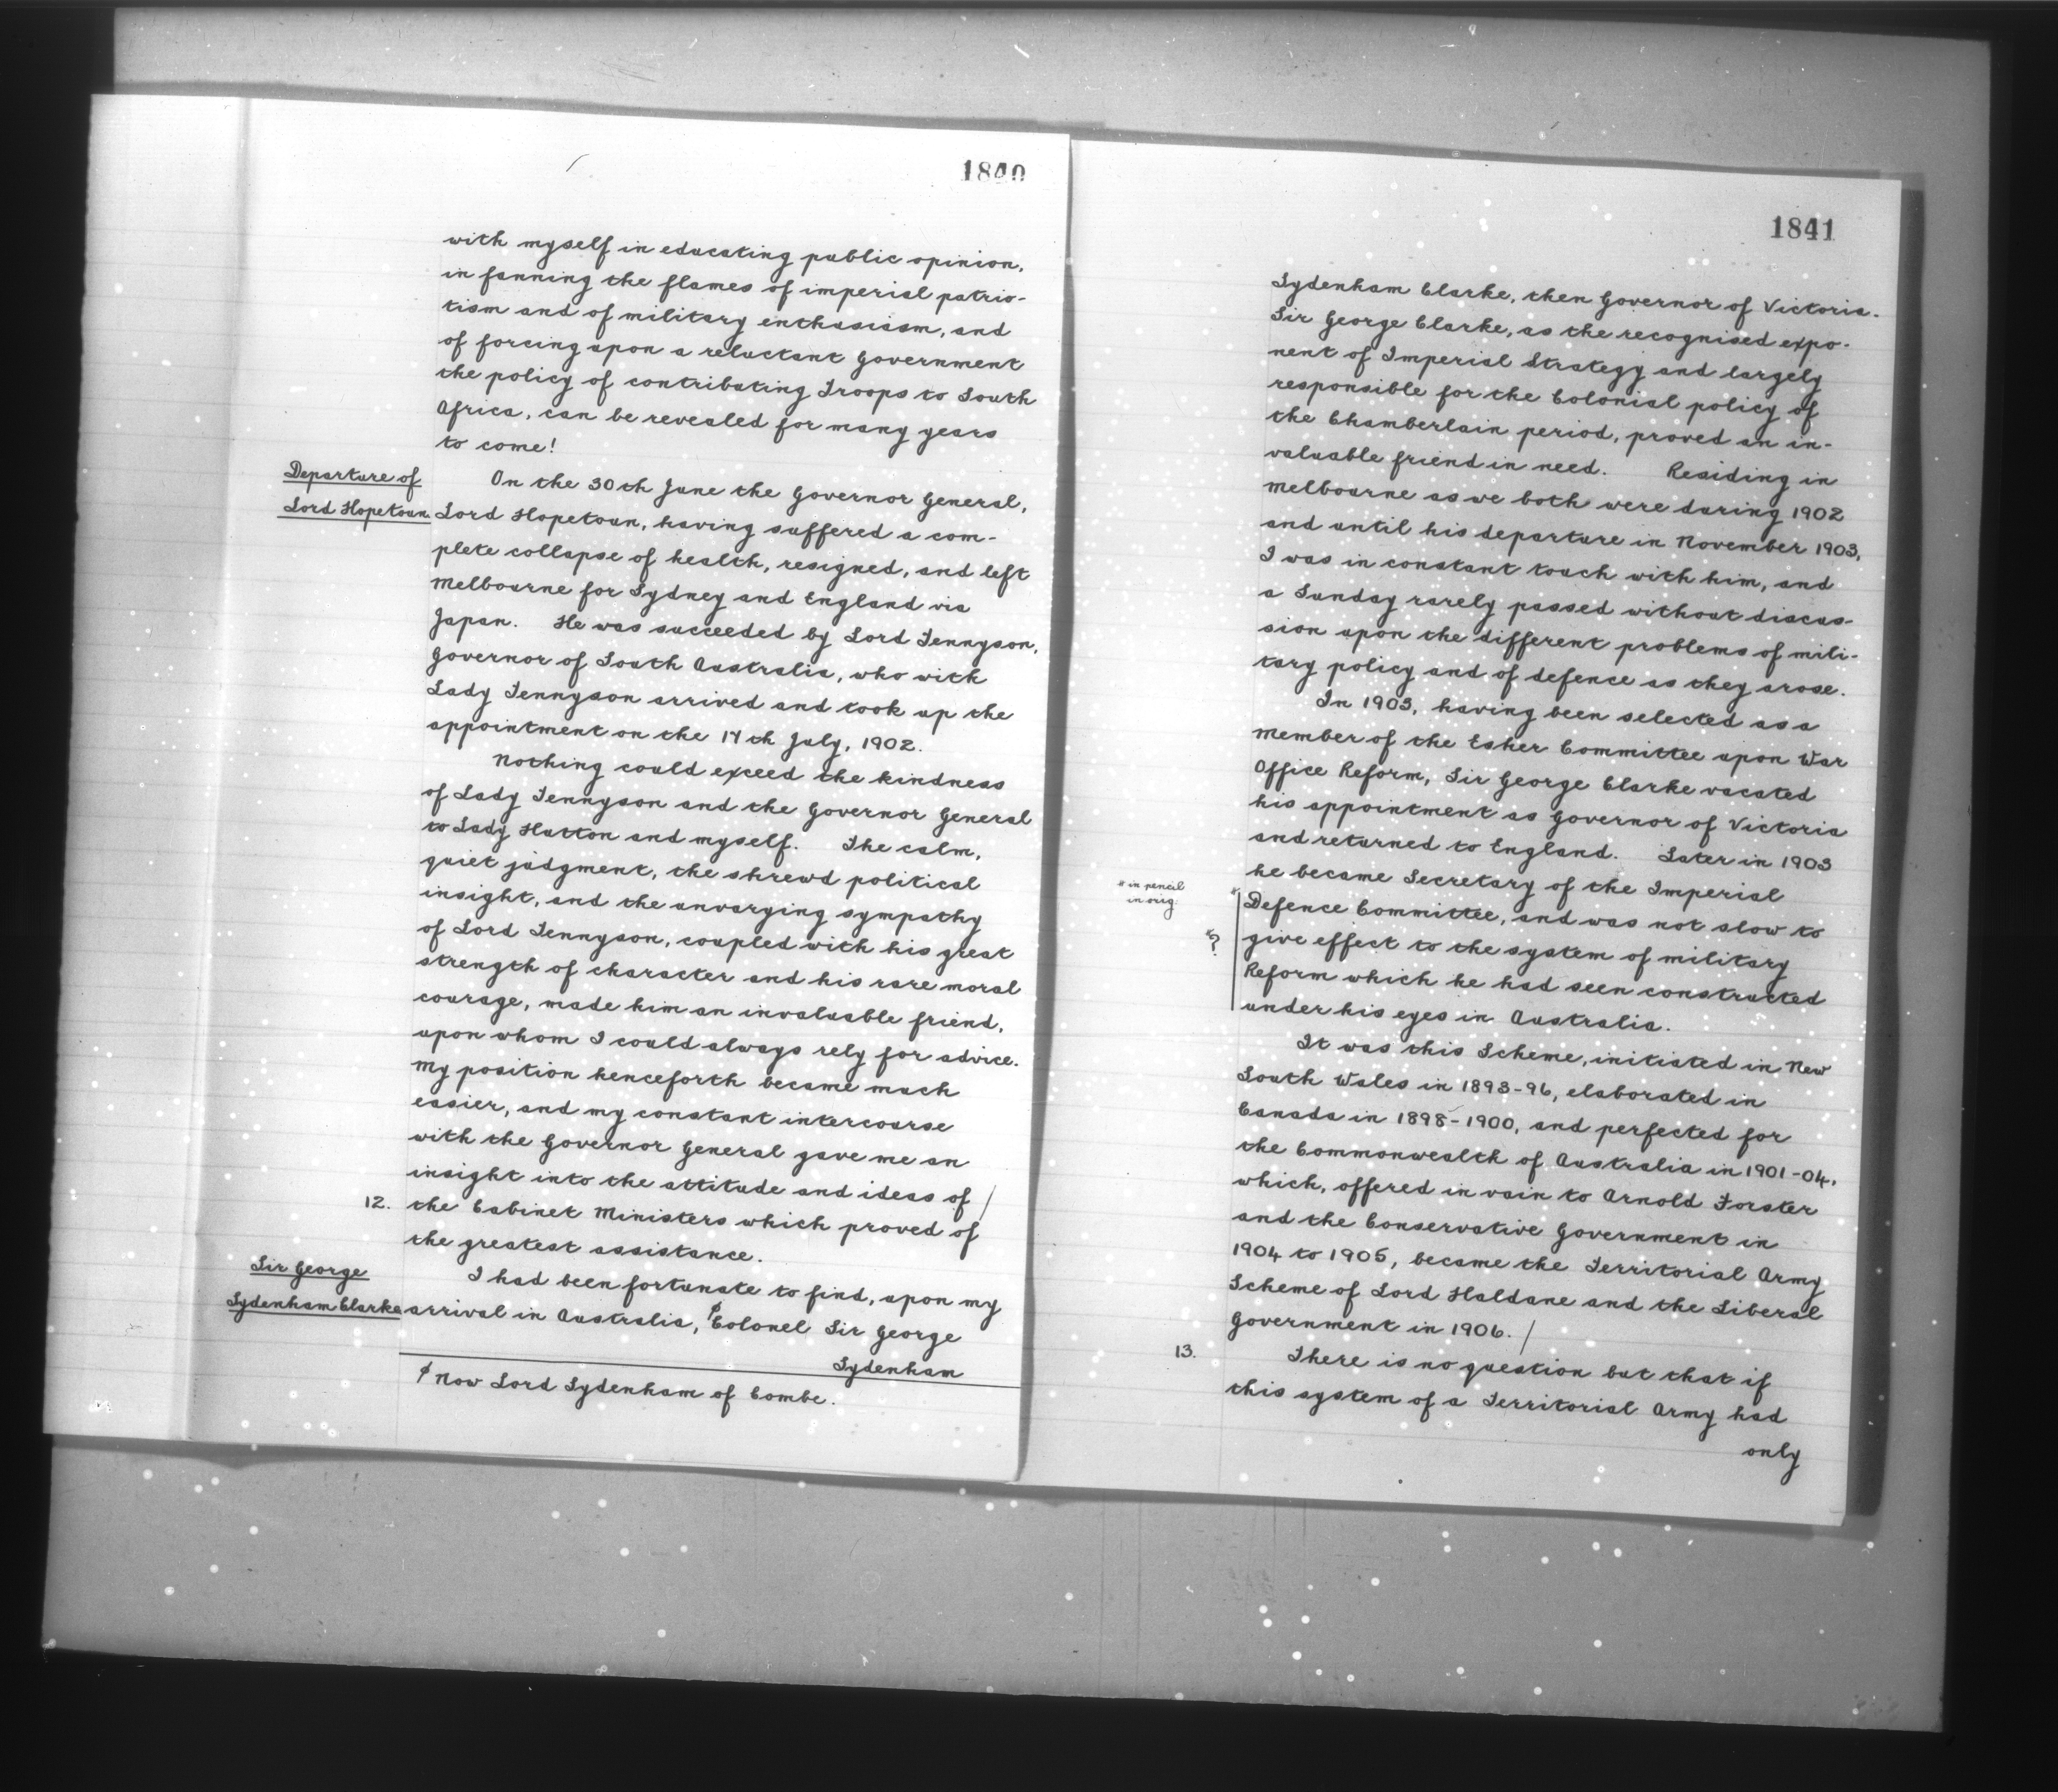 1840
with myself in educating public opinion,
in fanning the flames of imperial patrio-
tism and of military enthusiasm, and
of forcing upon a reluctant Government
the policy of contributing Troops to South
Africa, can be revealed for many years
to come!
Departure of
Lord Hopetoun.
On the 30th June the Governor General,
Lord Hopetoun, having suffered a com-
plete collapse of health, resigned, and left
Melbourne for Sydney and England via
Japan. He was succeeded by Lord Tennyson,
Governor of South Australia, who with
Lady Tennyson arrived and took up the
appointment on the 17th July, 1902.
Nothing could exceed the kindness
of Lady Tennyson and the Governor General
to Lady Hutton and myself. The calm,
quiet judgment, the shrewd political
insight, and the unvarying sympathy
of Lord Tennyson, coupled with his great
strength of character and his rare moral
courage, made him an invaluable friend,
upon whom I could always rely for advice.
My position henceforth became much
easier, and my constant intercourse
with the Governor General gave me an
insight into the attitude and ideas of /
12. the Cabinet Ministers which proved of
the greatest assistance.
Sir George
Sydenham Clarke
I had been fortunate to find, upon my
arrival in Australia, ∮Colonel Sir George
Sydenham
∮ Now Lord Sydenham of Combe.
1841
Sydenham Clarke, then Governor of Victoria.
Sir George Clarke, as the recognised expo-
nent of Imperial Strategy and largely
responsible for the Colonial policy of
the Chamberlain period, proved an in-
valuable friend in need. Residing in
Melbourne as we both were during 1902
and until his departure in November 1903,
I was in constant touch with him, and
a Sunday rarely passed without discus-
sion upon the different problems of mili-
tary policy and of defence as they arose.
In 1903, having been selected as a
member of the Esher Committee upon War
Office Reform, Sir George Clarke vacated
his appointment as Governor of Victoria
and returned to England. Later in 1903
he became Secretary of the Imperial
* in pencil
in orig.
*
Defence Committee, and was not slow to
*?
give effect to the system of military
Reform which he had seen constructed
under his eyes in Australia.
It was this Scheme, initiated in New
South Wales in 1893-96, elaborated in
Canada in 1898-1900, and perfected for
the Commonwealth of Australia in 1901-04,
which, offered in vain to Arnold Forster
and the Conservative Government in
1904 to 1905, became the Territorial Army
Scheme of Lord Haldane and the Liberal
Government in 1906. /
13. There is no question but that if
this system of a Territorial Army had
only